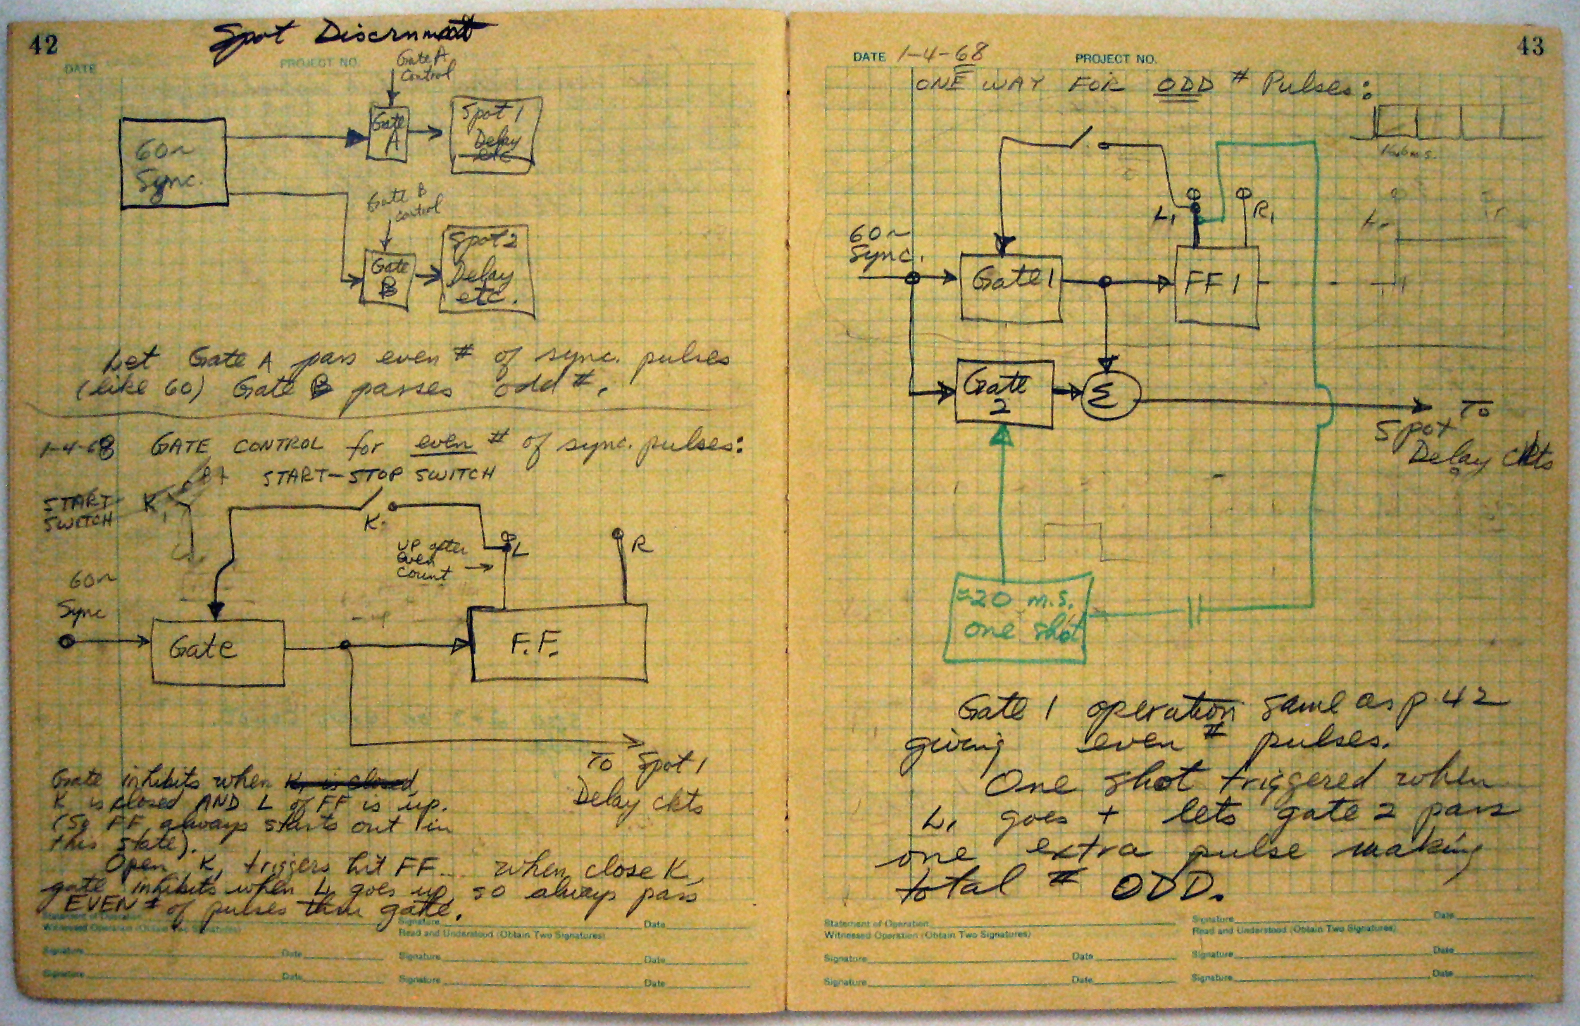 42
Spot Discrnmnt
DATE
PROJECT NO.
Gate A
Control
60~
Sync.
Gate
A
Spot 1
Delay
etc
Gate B
control
Gate
B
Spot 2
Delay
etc.
Let Gate A pass even # of sync. pulses
(like 60) Gate B passes odd #.
1-4-68 GATE CONTROL for even # of sync. pulses:
START-STOP SWITCH
START
SWITCH
K1
B+
K1
UP after
even
count
L
R
60~
Sync
Gate
F.F.
To Spot 1
Delay ckts
Gate inhibits when K1 is closed
K1 is closed AND L of FF is up.
(So FF always starts out in
this state).
Open K1, triggers hit FF... when close K1
gate inhibits when L goes up, so always pass
EVEN # of pulses thru gate.
Statement of Operation
Witnessed Operation (Obtain Two Signatures)
Signature
Date
Read and Understood (Obtain Two Signatures)
Signature
Date
Signature
Date
Signature
Date
Signature
Date
43
DATE 1-4-68
PROJECT NO.
ONE WAY FOR ODD # Pulses:
16.6 m.s.
L1
R1
L1
60~
Sync.
Gate 1
FF 1
Gate
2
Σ
To
Spot
Delay ckts
≈20 m.s.
one shot
Gate 1 operation same as p. 42
giving even # pulses.
One shot triggered when
L1 goes + lets gate 2 pass
one extra pulse making
total # ODD.
Statement of Operation
Witnessed Operation (Obtain Two Signatures)
Signature
Date
Read and Understood (Obtain Two Signatures)
Signature
Date
Signature
Date
Signature
Date
Signature
Date